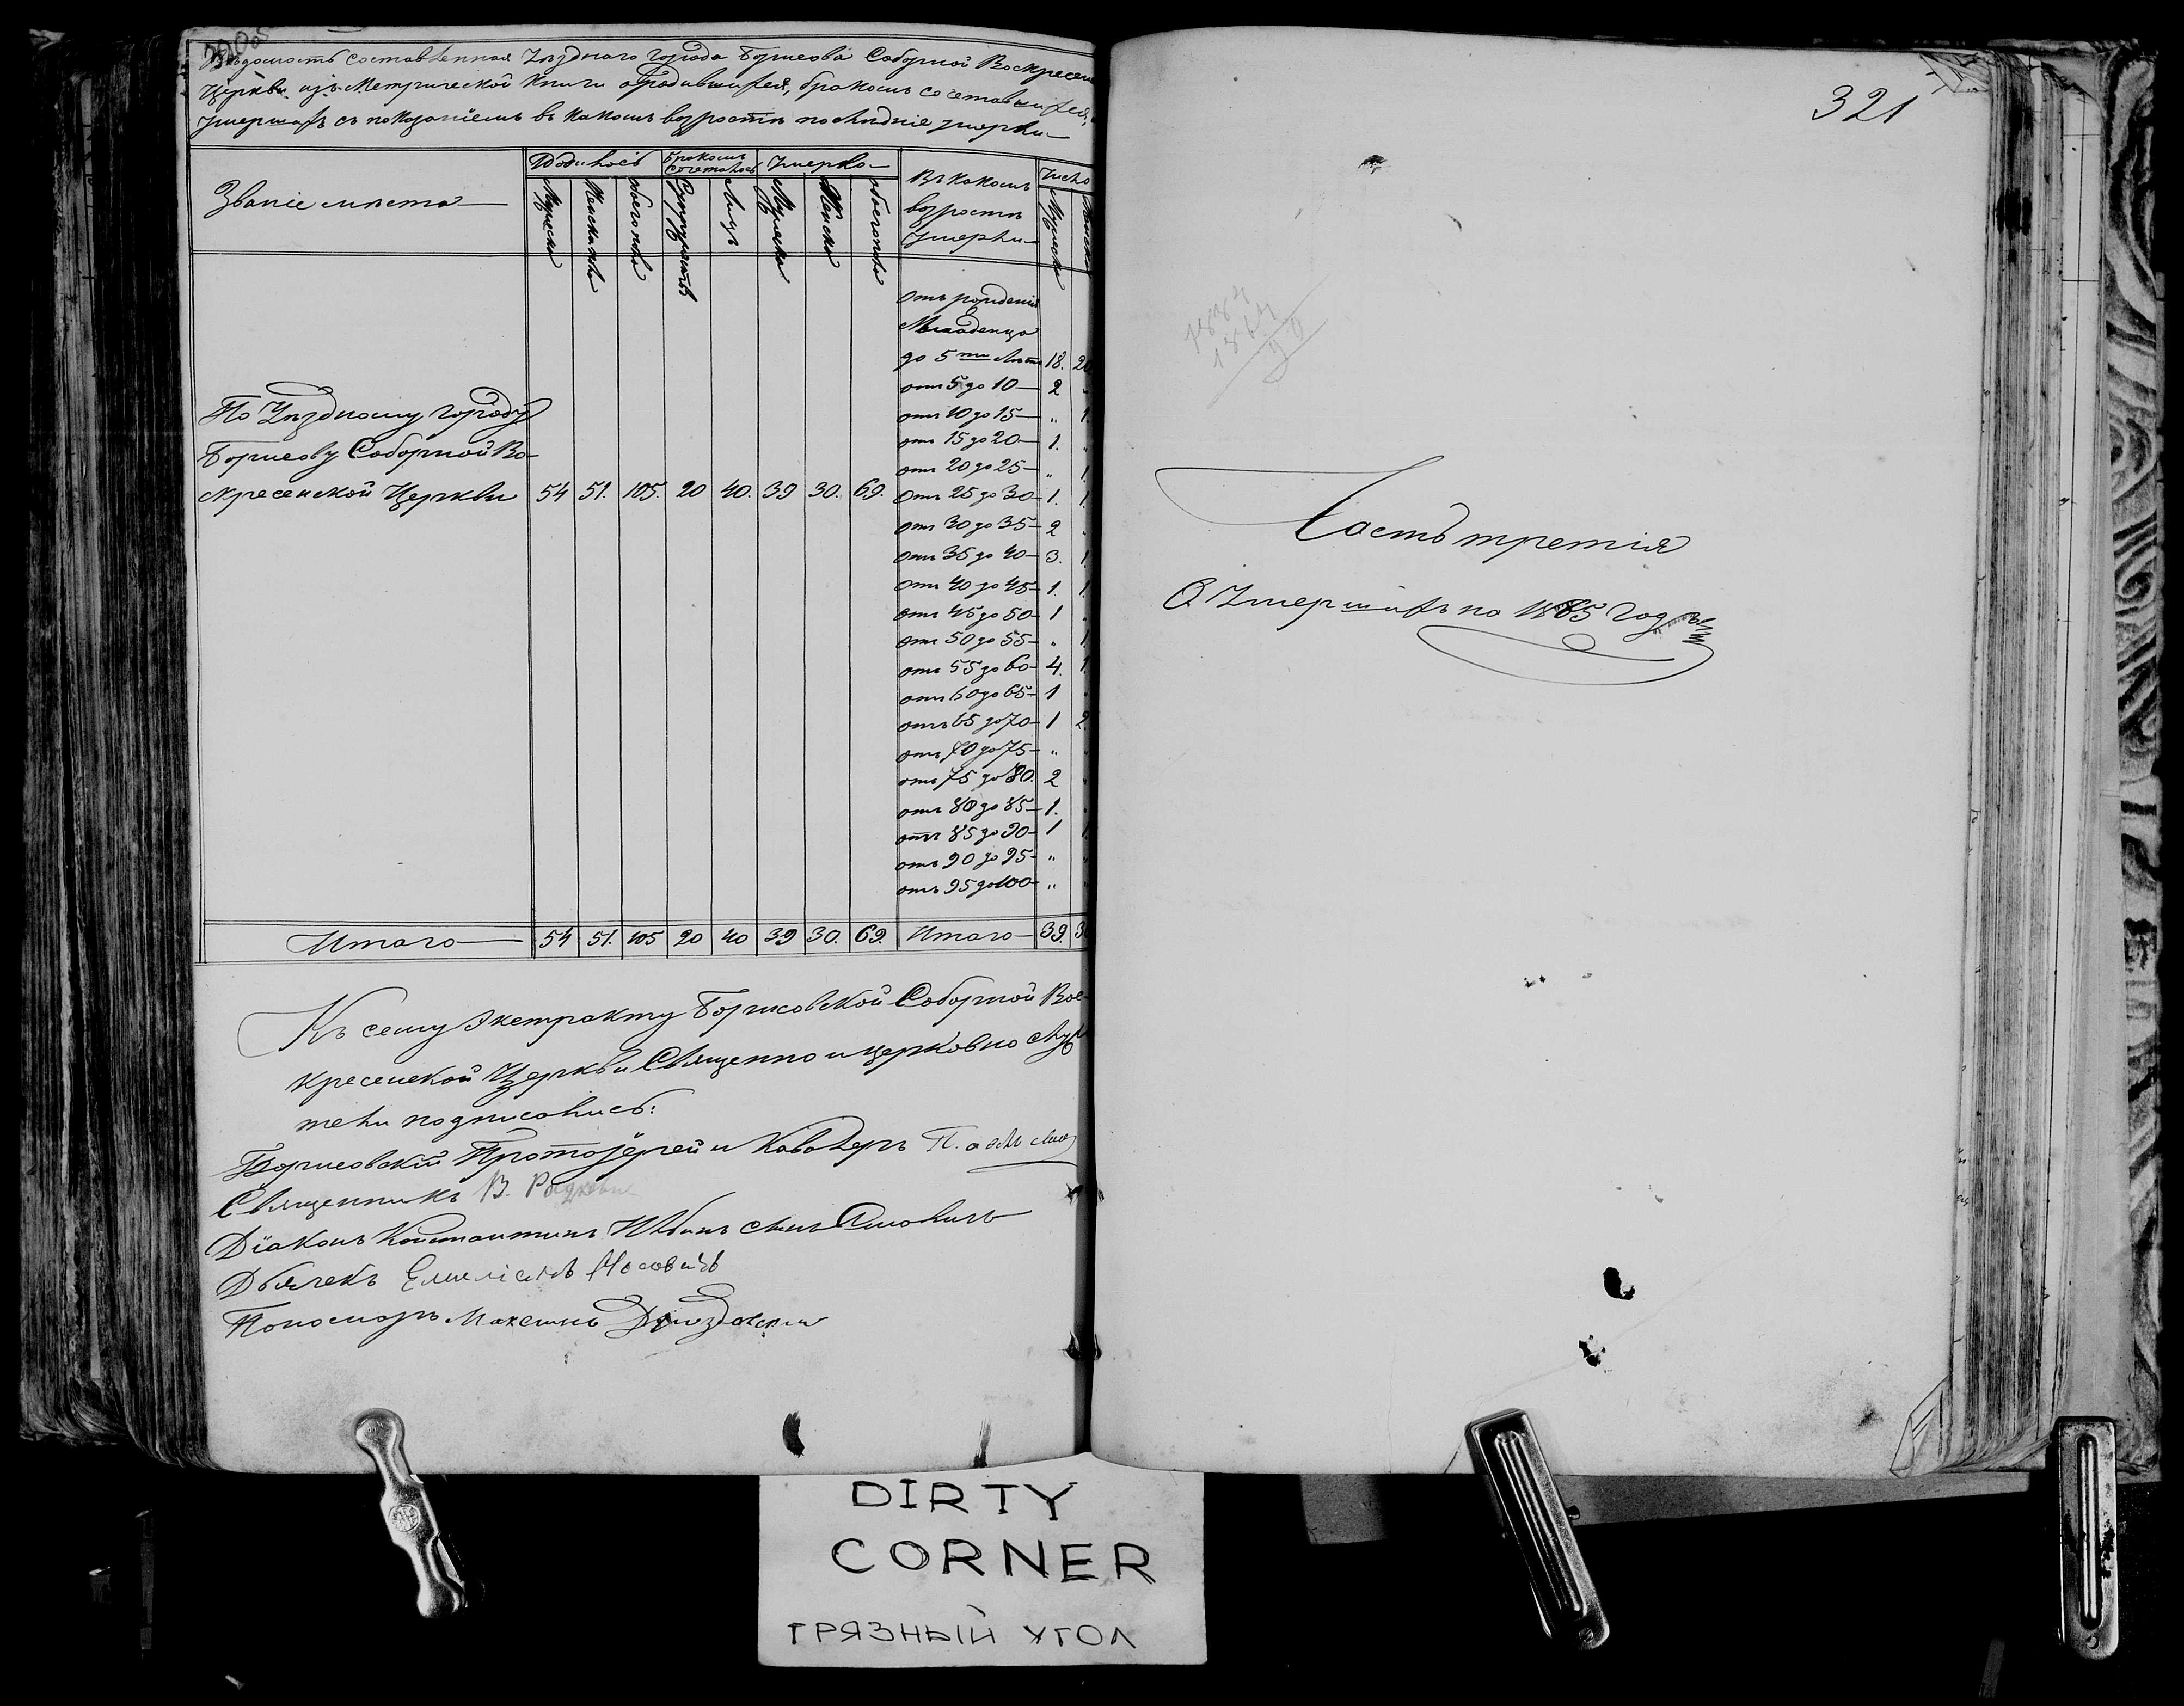 Вѣдомость составленная Уѣзднаго города Борисова Соборной Воскресен
Церкви изъ Метрической Книги о родившихся, бракомъ сочетавшихся,
умершихъ съ показаніемъ въ какомъ возрастѣ послѣдніе умерли
Званіе мѣста
Родилось
Бракомъ сочеталось
Умерло
Въ какомъ возрастѣ умерли
Число
Мужеска
Женска пола
обоего пола
Супружествъ
Лицъ
Мужеска
Женска
обоего пола
Мужеска
Женска
По Уѣздному городу
Борисову Соборной Во-
скресенской Церкви 54 51. 105. 20 40. 39 30. 69.
Отъ рожденія
Младенца
до 5ти лѣтъ 18. 20
отъ 5 до 10 2 "
отъ 10 до 15 " 1.
отъ 15 до 20 1. "
отъ 20 до 25 " 1
отъ 25 до 30 1. 1.
отъ 30 до 35 2 "
отъ 35 до 40 3. 1.
отъ 40 до 45 1. 1
отъ 45 до 50 1 "
отъ 50 до 55 " 1
отъ 55 до 60 4. 1.
отъ 60 до 65 1 "
отъ 65 до 70 1 2.
отъ 70 до 75 " "
отъ 75 до 80. 2 "
отъ 80 до 85 1. "
отъ 85 до 90 1 1
отъ 90 до 95 " "
отъ 95 до 100 " "
Итого 54 51. 105 20 40 39 30. 69. Итого 39. 30
Къ сему Экстракту Борисовской Соборной Вос-
кресенской Церкви Священно и церковно служ
тели подписались:
Борисовскій Протоіерей и Кавалеръ
Священникъ В.
Діаконъ Константинъ
Дьячекъ
Пономарь Максимъ
321
1884
1864
Часть третія
О Умершихъ по 1865 годъ
DIRTY
CORNER
ГРЯЗНЫЙ УГОЛ